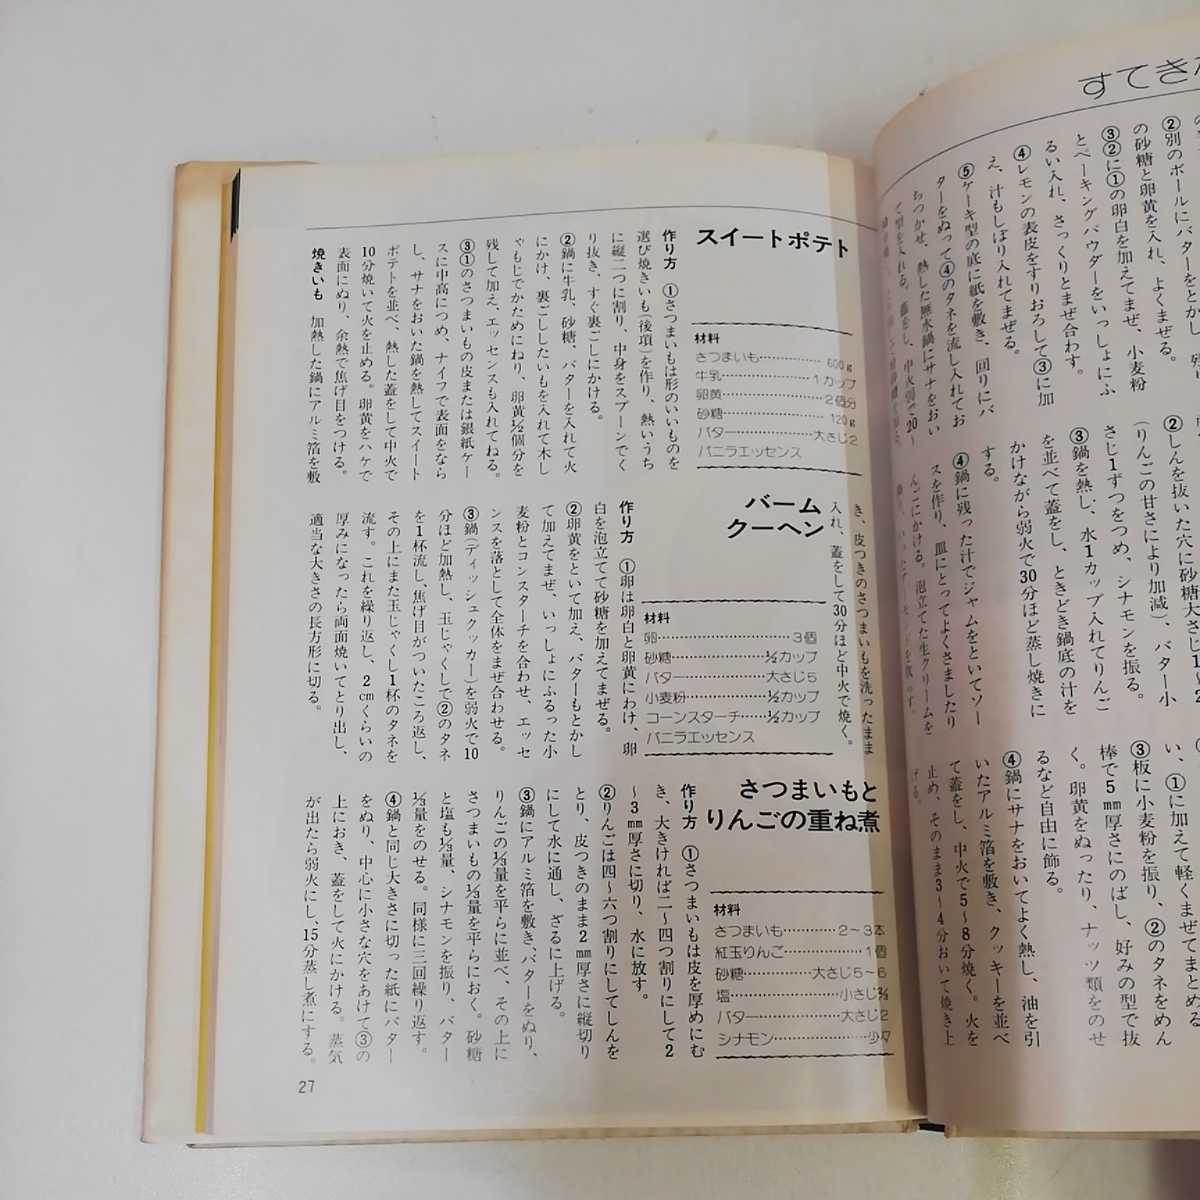 すてきな
②別のボールにバターをとかし、残り
の砂糖と卵黄を入れ、よくまぜる。
③②に①の卵白を加えてまぜ、小麦粉
とベーキングパウダーをいっしょにふ
るい入れ、さっくりとまぜ合わす。
④レモンの表皮をすりおろして③に加
え、汁もしぼり入れてまぜる。
⑤ケーキ型の底に紙を敷き、回りにバ
ターをぬって④のタネを流し入れてお
ちつかせ、熱した無水鍋にサナをおい
て型を入れる。蓋をし、中火弱で20〜
②しんを抜いた穴に砂糖大さじ1
（りんごの甘さにより加減）、バター小
さじ1ずつをつめ、シナモンを振る。
③鍋を熱し、水1カップ入れてりんご
を並べて蓋をし、ときどき鍋底の汁を
かけながら弱火で30分ほど蒸し焼きに
する。
④鍋に残った汁でジャムをといてソー
スを作り、皿にとってよくさましたり
んごにかける。泡立てた生クリームを
い、①に加えて軽くまぜてまとめる
③板に小麦粉を振り、②のタネをめん
棒で5㎜厚さにのばし、好みの型で抜
く。卵黄をぬったり、ナッツ類をのせ
るなど自由に飾る。
④鍋にサナをおいてよく熱し、油を引
いたアルミ箔を敷き、クッキーを並べ
て蓋をし、中火で5〜8分焼く。火を
止め、そのまま3〜4分おいて焼き上
げる。
スイートポテト
材料
さつまいも…………… 600g
牛乳……………1カップ
卵黄……………2個分
砂糖…………… 120g
バター……………大さじ2
バニラエッセンス
作り方　①さつまいもは形のいいものを
選び焼きいも(後項)を作り、熱いうち
に縦二つに割り、中身をスプーンでく
り抜き、すぐ裏ごしにかける。
②鍋に牛乳、砂糖、バターを入れて火
にかけ、裏ごししたいもを入れて木し
ゃもじでかためにねり、卵黄½個分を
残して加え、エッセンスも入れてねる。
③①のさつまいもの皮または銀紙ケー
スに中高につめ、ナイフで表面をなら
し、サナをおいた鍋を熱してスイート
ポテトを並べ、熱した蓋をして中火で
10分焼いて火を止める。卵黄をハケで
表面にぬり、余熱で焦げ目をつける。
焼きいも　加熱した鍋にアルミ箔を敷
き、皮つきのさつまいもを洗ったまま
入れ、蓋をして30分ほど中火で焼く。
バーム
クーヘン
材料
卵……………3個
砂糖……………½カップ
バター……………大さじ5
小麦粉……………½カップ
コーンスターチ……½カップ
バニラエッセンス
作り方　①卵は卵白と卵黄にわけ、卵
白を泡立てて砂糖を加えてまぜる。
②卵黄をといて加え、バターもとかし
て加えてまぜ、いっしょにふるった小
麦粉とコンスターチを合わせ、エッセ
ンスを落として全体をまぜ合わせる。
③鍋(ディッシュクッカー)を弱火で10
分ほど加熱し、玉じゃくしで②のタネ
を1杯流し、焦げ目がついたころ返し、
その上にまた玉じゃくし1杯のタネを
流す。これを繰り返し、2㎝くらいの
厚みになったら両面焼いてとり出し、
適当な大きさの長方形に切る。
さつまいもと
りんごの重ね煮
材料
さつまいも…………2〜3本
紅玉りんご……………1個
砂糖…………大さじ5〜6
塩……………小さじ⅔
バター……………大さじ2
シナモン……………少々
作り方　①さつまいもは皮を厚めにむ
き、大きければ二〜四つ割りにして2
〜3㎜厚さに切り、水に放す。
②りんごは四〜六つ割りにしてしんを
とり、皮つきのまま2㎜厚さに縦切り
にして水に通し、ざるに上げる。
③鍋にアルミ箔を敷き、バターをぬり、
りんごの⅓量を平らに並べ、その上に
さつまいもの⅓量を平らにおく。砂糖
と塩も⅓量、シナモンを振り、バター
⅓量をのせる。同様に三回繰り返す。
④鍋と同じ大きさに切った紙にバター
をぬり、中心に小さな穴をあけて③の
上におき、蓋をして火にかける。蒸気
が出たら弱火にし、15分蒸し煮にする。
27